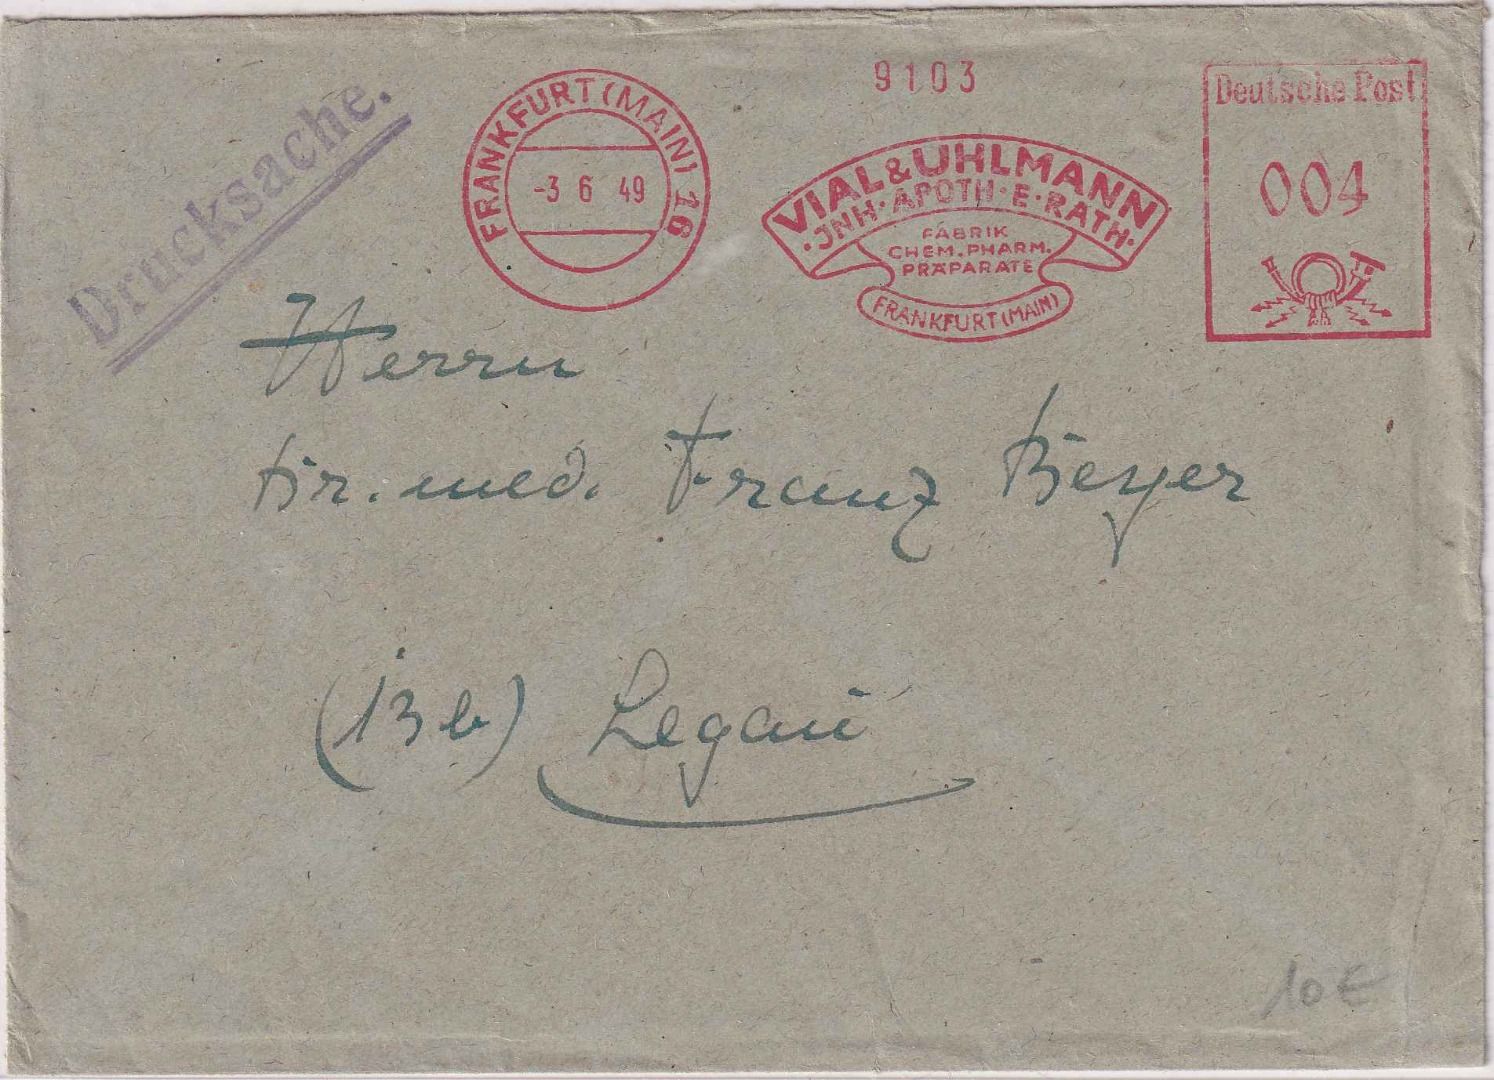 Drucksache.
FRANKFURT (MAIN) 16
-3 6 49
9103
VIAL & UHLMANN
·JNH·APOTH·E·RATH·
FABRIK
CHEM. PHARM.
PRÄPARATE
FRANKFURT (MAIN)
Deutsche Post
004
Herrn
Dr. med. Franz Beyer
(13b) Legau
10 €